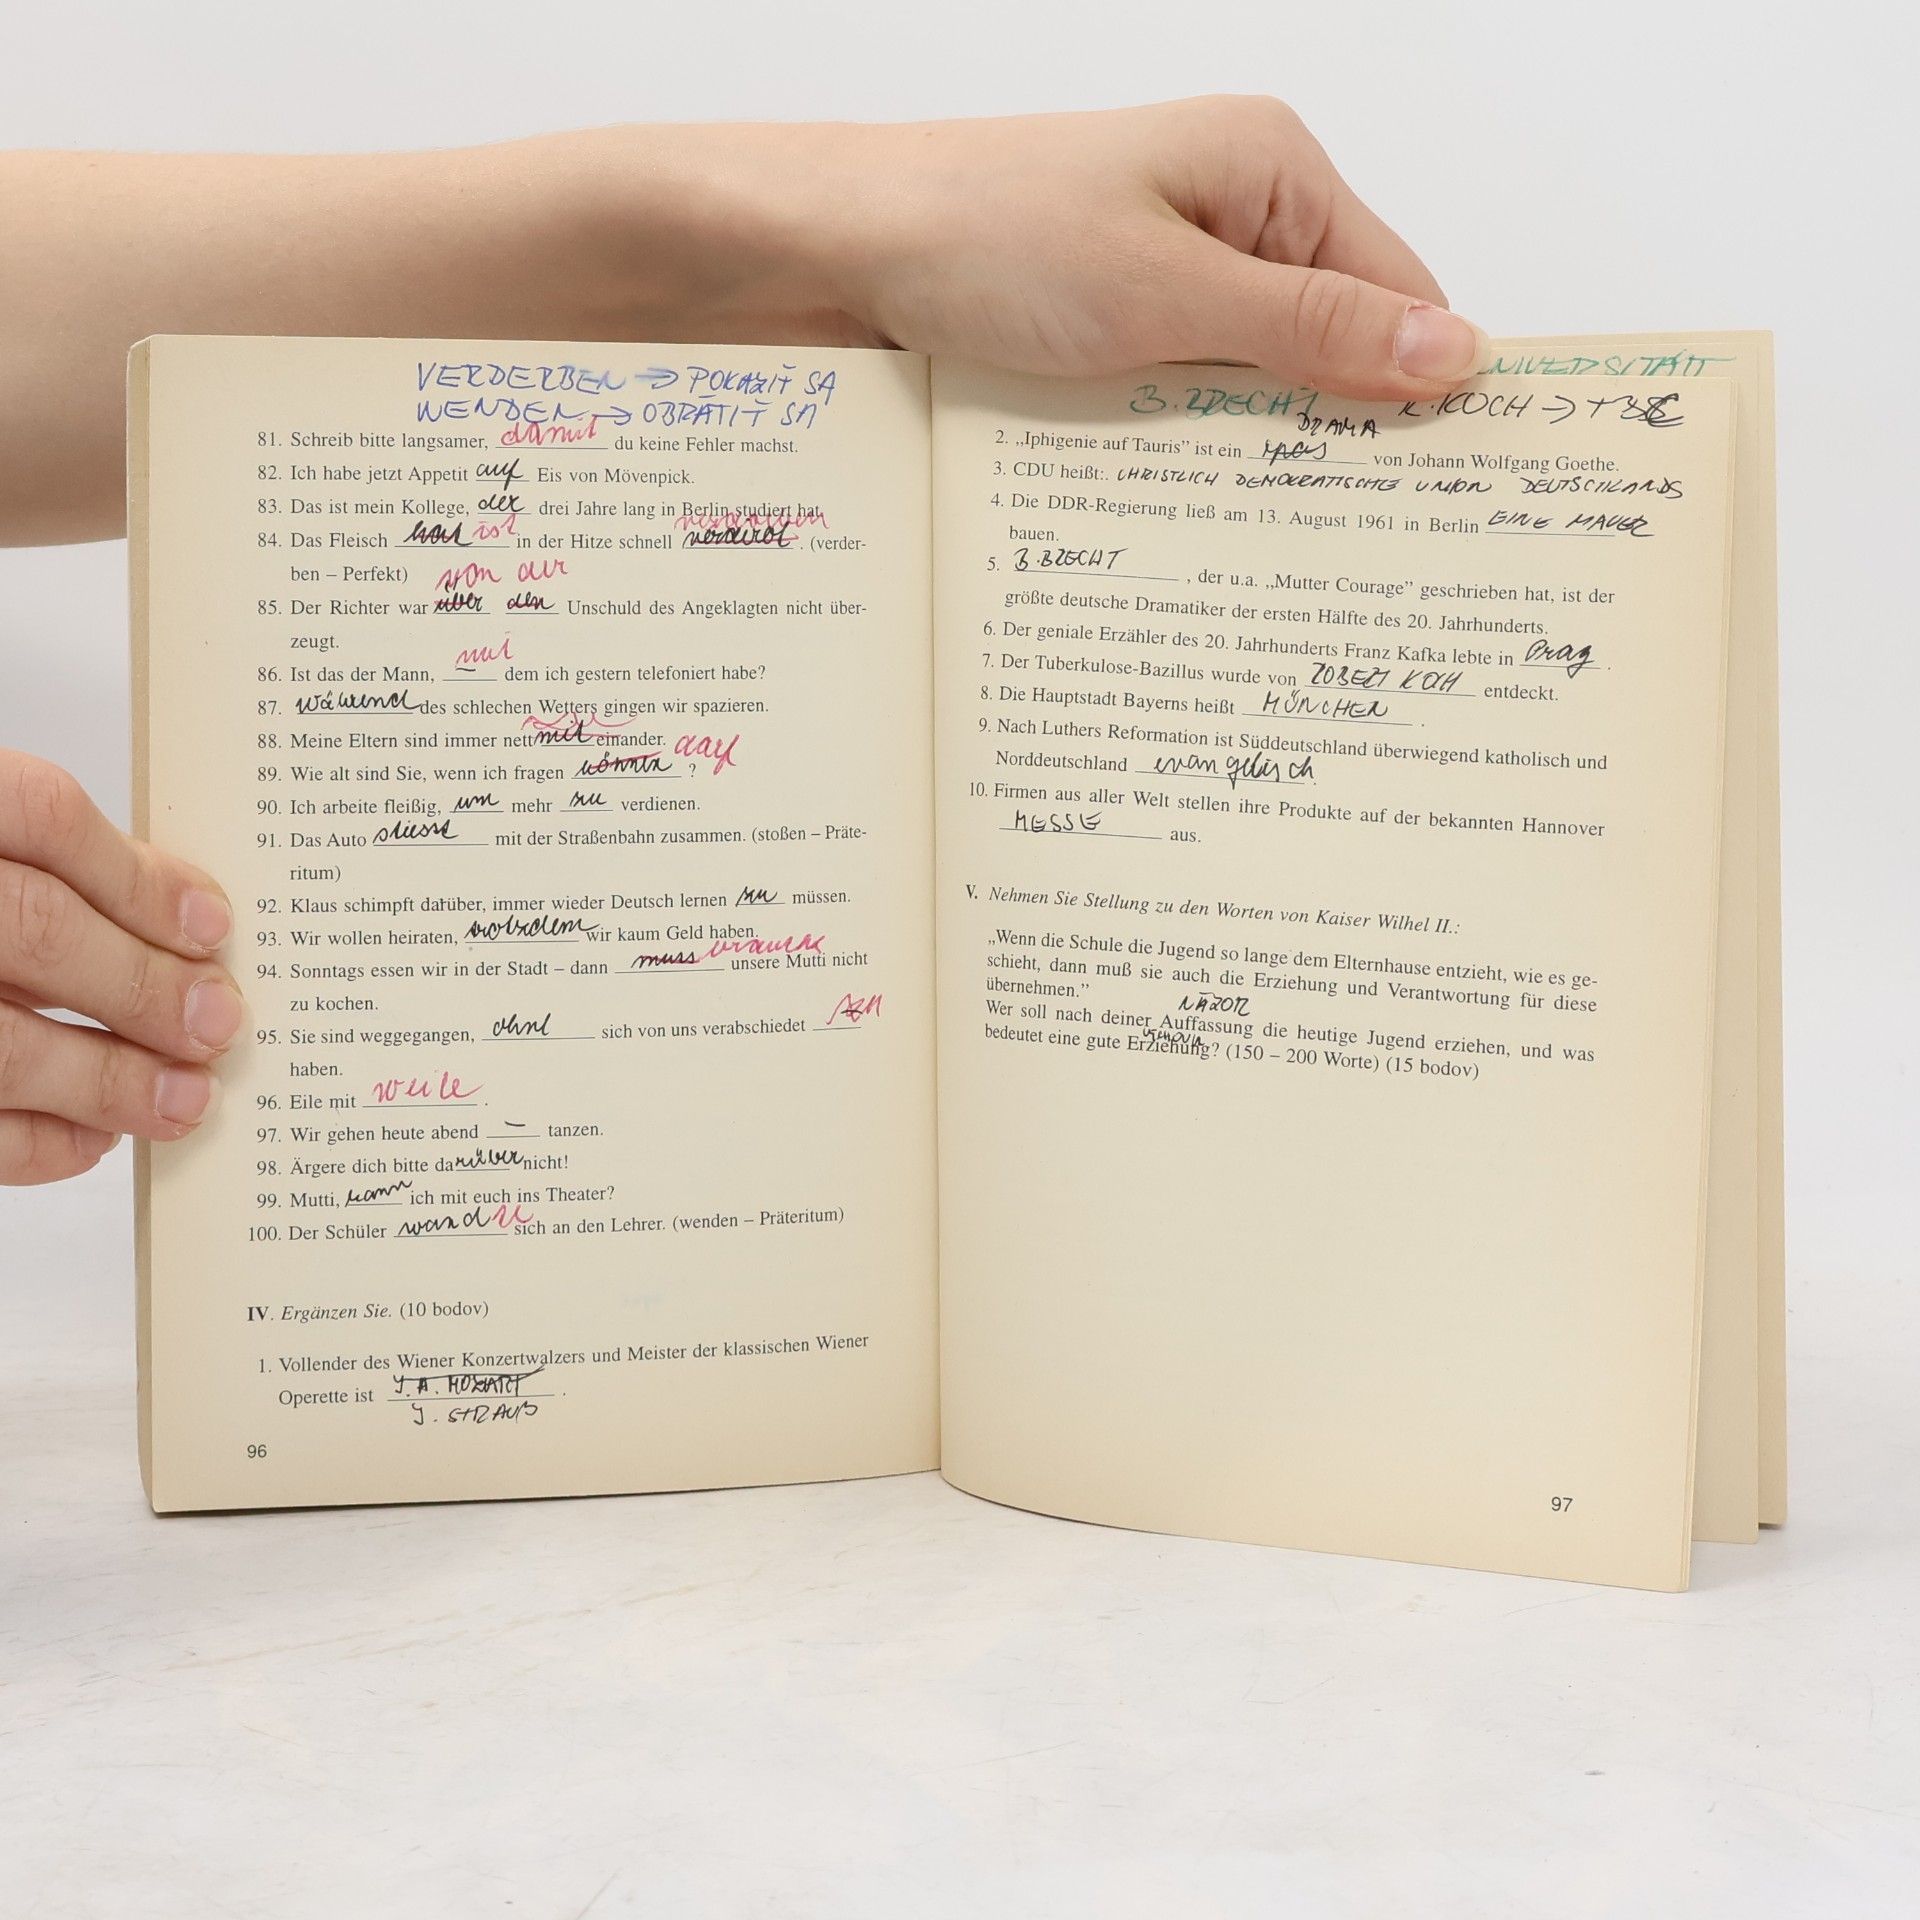 VERDERBEN → POKAZIŤ SA
WENDEN → OBRÁTIŤ SA
81. Schreib bitte langsamer, damit du keine Fehler machst.
82. Ich habe jetzt Appetit auf Eis von Mövenpick.
83. Das ist mein Kollege, der drei Jahre lang in Berlin studiert hat.
84. Das Fleisch hat ist in der Hitze schnell verdirbt verdorben. (verder-
ben – Perfekt)
von der
85. Der Richter war über den Unschuld des Angeklagten nicht über-
zeugt.
86. Ist das der Mann, mit dem ich gestern telefoniert habe?
87. während des schlechen Wetters gingen wir spazieren.
88. Meine Eltern sind immer nett mit einander.
89. Wie alt sind Sie, wenn ich fragen können darf ?
90. Ich arbeite fleißig, um mehr zu verdienen.
91. Das Auto stiesst mit der Straßenbahn zusammen. (stoßen – Präte-
ritum)
92. Klaus schimpft darüber, immer wieder Deutsch lernen zu müssen.
93. Wir wollen heiraten, trotzdem wir kaum Geld haben.
94. Sonntags essen wir in der Stadt – dann muss braucht unsere Mutti nicht
zu kochen.
95. Sie sind weggegangen, ohne sich von uns verabschiedet zu
haben.
96. Eile mit weile .
97. Wir gehen heute abend – tanzen.
98. Ärgere dich bitte darüber nicht!
99. Mutti, kann ich mit euch ins Theater?
100. Der Schüler wandte sich an den Lehrer. (wenden – Präteritum)
IV. Ergänzen Sie. (10 bodov)
1. Vollender des Wiener Konzertwalzers und Meister der klassischen Wiener
Operette ist J. A. MOZART .
J. STRAUß
96
B. BRECHT K. KOCH →
DRAMA
2. „Iphigenie auf Tauris” ist ein von Johann Wolfgang Goethe.
3. CDU heißt:. CHRISTLICH DEMOKRATISCHE UNION DEUTSCHLANDS
4. Die DDR-Regierung ließ am 13. August 1961 in Berlin EINE MAUER
bauen.
5. B. BRECHT , der u.a. „Mutter Courage” geschrieben hat, ist der
größte deutsche Dramatiker der ersten Hälfte des 20. Jahrhunderts.
6. Der geniale Erzähler des 20. Jahrhunderts Franz Kafka lebte in Prag .
7. Der Tuberkulose-Bazillus wurde von ROBERT KOCH entdeckt.
8. Die Hauptstadt Bayerns heißt MÜNCHEN .
9. Nach Luthers Reformation ist Süddeutschland überwiegend katholisch und
Norddeutschland evangelisch .
10. Firmen aus aller Welt stellen ihre Produkte auf der bekannten Hannover
MESSE aus.
V. Nehmen Sie Stellung zu den Worten von Kaiser Wilhel II.:
„Wenn die Schule die Jugend so lange dem Elternhause entzieht, wie es ge-
schieht, dann muß sie auch die Erziehung und Verantwortung für diese
übernehmen.”
NÁZOR
Wer soll nach deiner Auffassung die heutige Jugend erziehen, und was
bedeutet eine gute Erziehung? (150 – 200 Worte) (15 bodov)
97